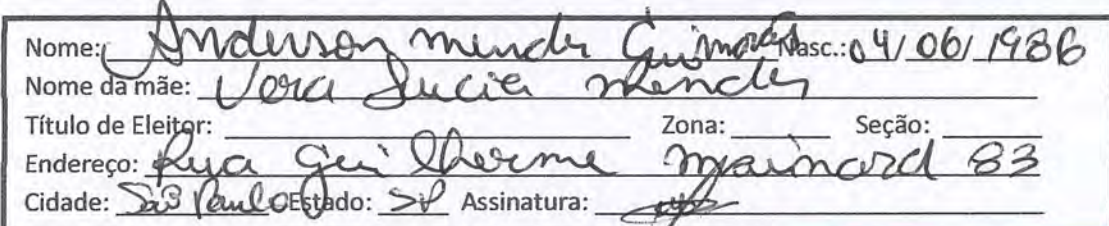 Nome: Anderson mendes Guimarães Nasc.: 04/06/1986
Nome da mãe: Vera Lucia mendes
Título de Eleitor: Zona: Seção:
Endereço: Rua Guilherme mainard 83
Cidade: São Paulo Estado: SP Assinatura: